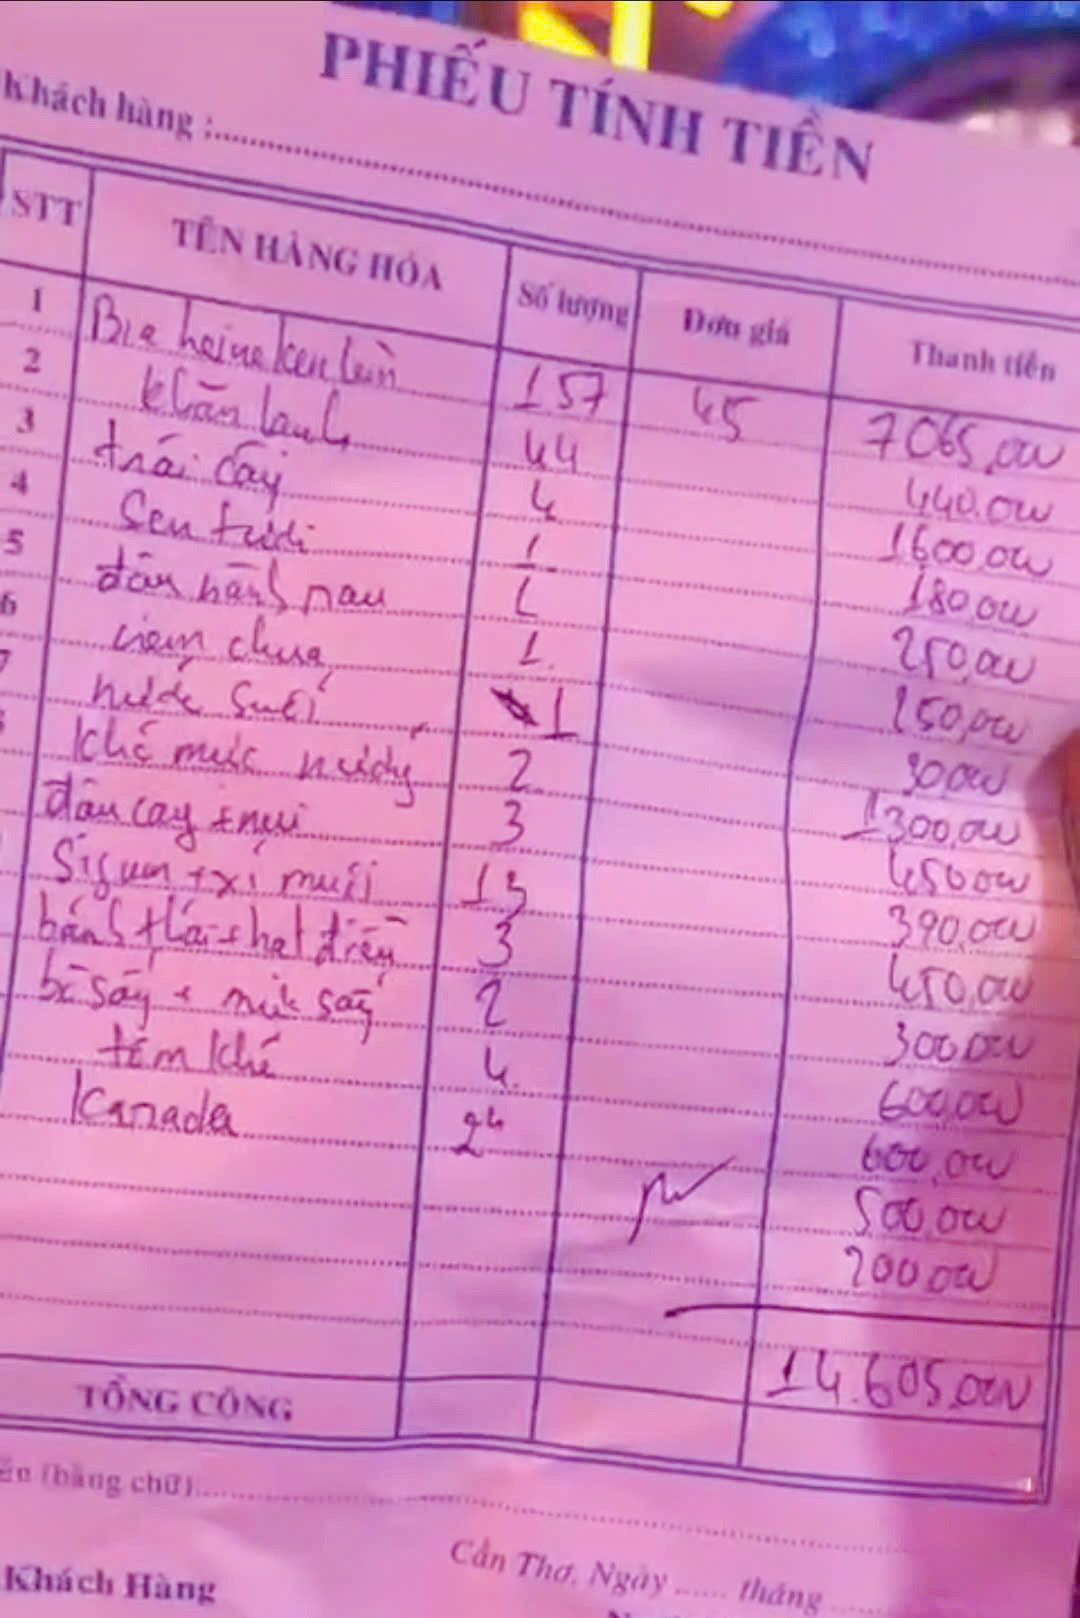 PHIẾU TÍNH TIỀN
Khách hàng :
STT TÊN HÀNG HÓA Số lượng Đơn giá Thanh tiền
1 Bia heineken lùn 157 45 7065,000
2 khăn lạnh 44 440.000
3 trái cây 4 1600,000
4 Sen tươi 1 180,000
5 đậu hành nau 1 250,000
6 chua 1. 250,000
7 nước suối 1 30,000
Khô mực nướng 2 1300,000
đậu cay + nui 3 450,000
+ xí muối 13 390,000
bánh thái + hạt điều 3 450,000
bò sấy + mít sấy 2 300,000
tôm khô 4 600,000
Kanada 24 600,000
500,000
200,000
14.605,000
TỔNG CỘNG
(bằng chữ)
Cần Thơ, Ngày ...... tháng
Khách Hàng